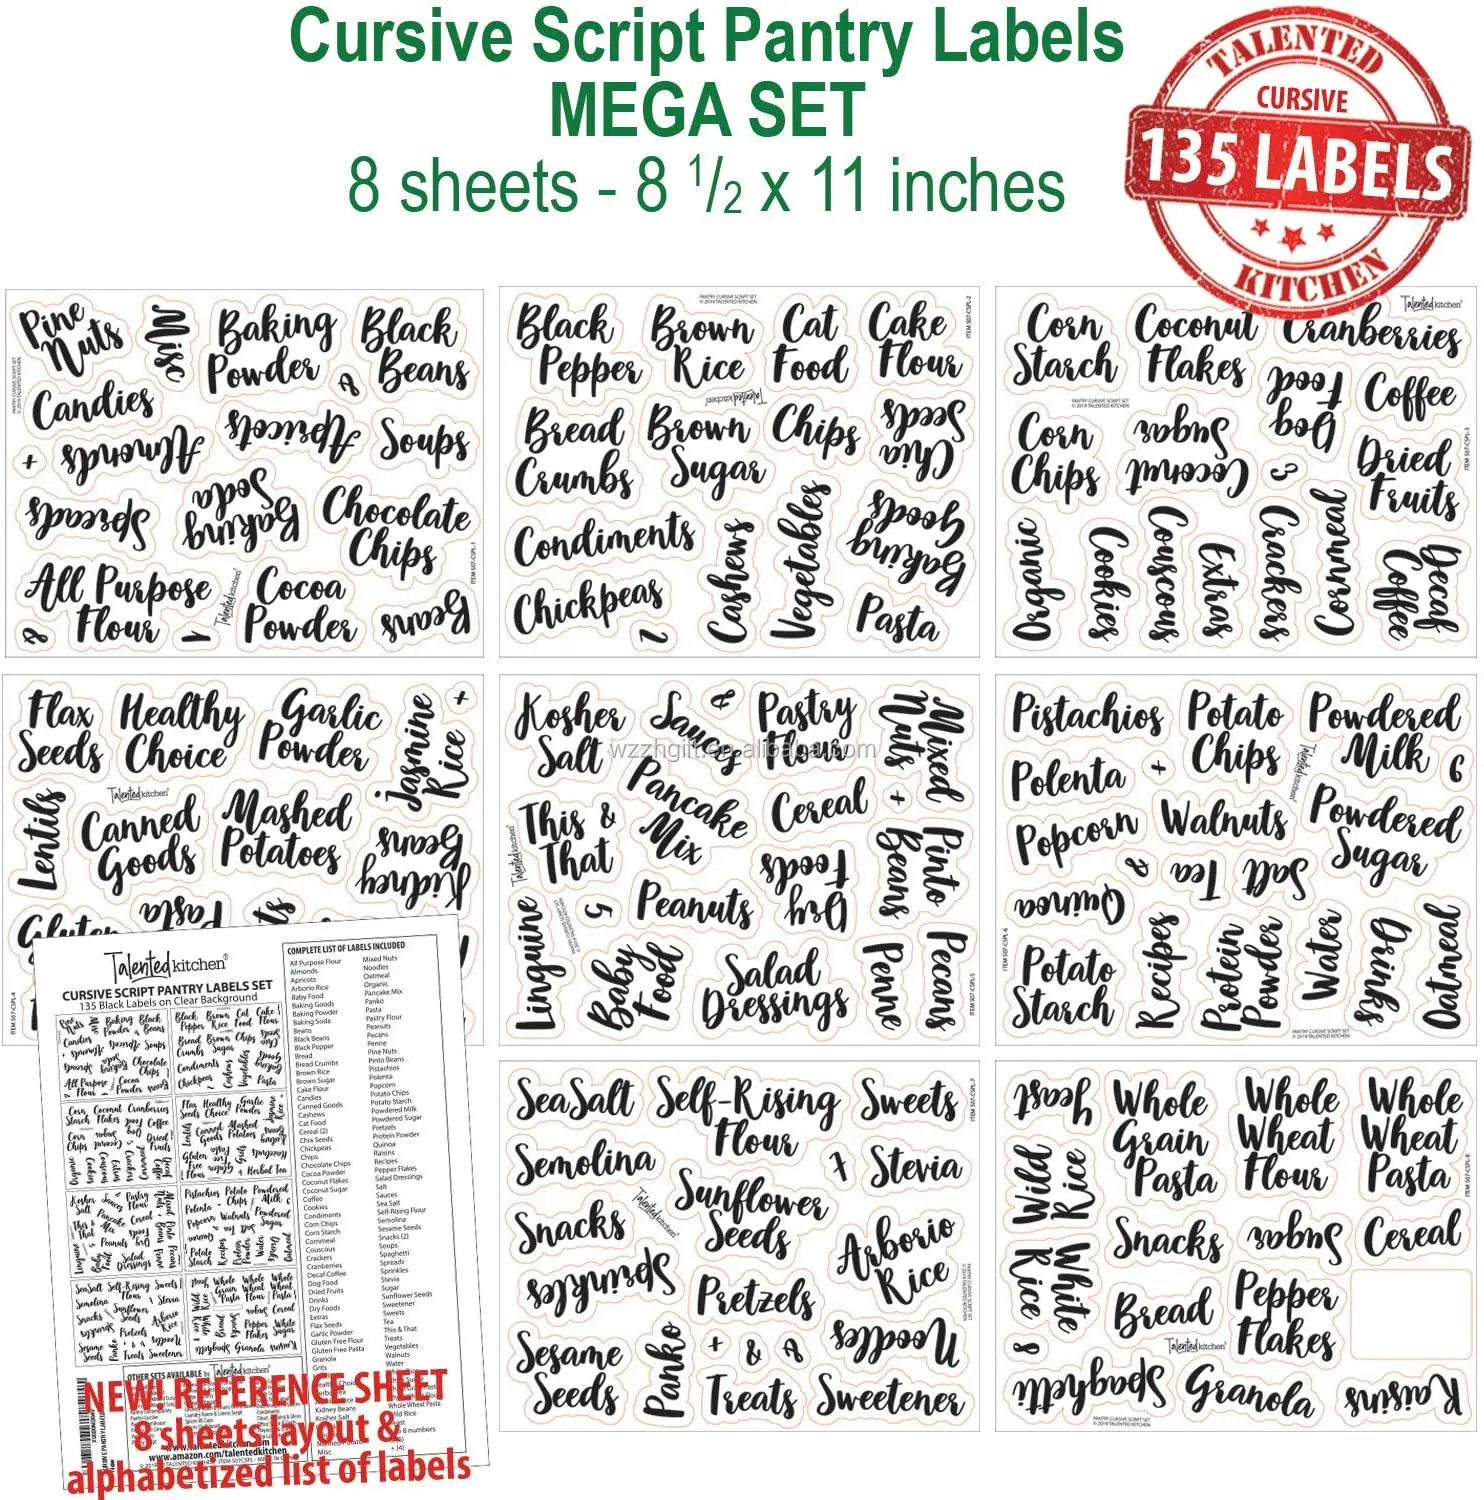 Cursive Script Pantry Labels
MEGA SET
8 sheets - 8 1/2 x 11 inches
TALENTED
CURSIVE
135 LABELS
KITCHEN
Pine Nuts
Misc
Baking Powder
&
Black Beans
Candies
+
Almonds
Apricots
Soups
Spreads
Baking Soda
Chocolate Chips
All Purpose Flour
&
1
Talented kitchen
Cocoa Powder
Beans
PANTRY CURSIVE SCRIPT SET
© 2019 TALENTED KITCHEN
ITEM 507-CSPL-1
PANTRY CURSIVE SCRIPT SET
© 2019 TALENTED KITCHEN
ITEM 507-CSPL-2
Black Pepper
Brown Rice
Cat Food
Cake Flour
Talented kitchen
Bread Crumbs
Brown Sugar
Chips
Chia Seeds
Condiments
Cashews
Vegetables
Baking Goods
Chickpeas
2
Pasta
Corn Starch
Coconut Flakes
Cranberries
Talented kitchen®
PANTRY CURSIVE SCRIPT SET
© 2019 TALENTED KITCHEN
Dog Food
Coffee
Corn Chips
Coconut Sugar
3
Dried Fruits
ITEM 507-CSPL-3
Organic
Cookies
Couscous
Extras
Crackers
Cornmeal
Decaf Coffee
Flax Seeds
Healthy Choice
Garlic Powder
Jasmine Rice
+
Lentils
Talented kitchen
Canned Goods
Mashed Potatoes
Kidney Beans
Gluten
Pasta
ITEM 507-CSPL-4
Kosher Salt
Saucy
&
Pastry Flour
Mixed Nuts
wzzhgift.en.alibaba.com
This & That
Pancake Mix
Cereal
+
Pinto Beans
Talented kitchen
Linguine
5
Peanuts
Dry Foods
Baby Food
Salad Dressings
Penne
Pecans
ITEM 507-CSPL-5
Pistachios
Potato Chips
Powdered Milk
6
Polenta
+
Talented kitchen
Popcorn
Walnuts
Powdered Sugar
&
Tea
Salt
Quinoa
Potato Starch
Recipes
Protein Powder
Water
Drinks
Oatmeal
ITEM 507-CSPL-6
PANTRY CURSIVE SCRIPT SET
© 2019 TALENTED KITCHEN
Sea Salt
Self-Rising Flour
Sweets
Semolina
7
Stevia
Talented kitchen
Snacks
Sunflower Seeds
Arborio Rice
Sprinkles
Pretzels
Sesame Seeds
Panko
+
&
&
Noodles
Treats
Sweetener
ITEM 507-CSPL-7
Yeast
Whole Grain Pasta
Whole Wheat Flour
Whole Wheat Pasta
Wild Rice
Snacks
Sugar
Cereal
White Rice
Bread
Pepper Flakes
8
Talented kitchen
Spaghetti
Granola
Raisins
PANTRY CURSIVE SCRIPT SET
© 2019 TALENTED KITCHEN
ITEM 507-CSPL-8
Talented kitchen®
CURSIVE SCRIPT PANTRY LABELS SET
135 Black Labels on Clear Background
COMPLETE LIST OF LABELS INCLUDED
All Purpose Flour
Almonds
Apricots
Arborio Rice
Baby Food
Baking Goods
Baking Powder
Baking Soda
Beans
Black Beans
Black Pepper
Bread
Bread Crumbs
Brown Rice
Brown Sugar
Cake Flour
Candies
Canned Goods
Cashews
Cat Food
Cereal (2)
Chia Seeds
Chickpeas
Chips
Chocolate Chips
Cocoa Powder
Coconut Flakes
Coconut Sugar
Coffee
Cookies
Condiments
Corn Chips
Corn Starch
Cornmeal
Couscous
Crackers
Cranberries
Decaf Coffee
Dog Food
Dried Fruits
Drinks
Dry Foods
Extras
Flax Seeds
Garlic Powder
Gluten Free Flour
Gluten Free Pasta
Granola
Grits
Kidney Beans
Kosher Salt
Misc
Mixed Nuts
Noodles
Oatmeal
Organic
Pancake Mix
Panko
Pasta
Pastry Flour
Peanuts
Pecans
Penne
Pine Nuts
Pinto Beans
Pistachios
Polenta
Popcorn
Potato Chips
Potato Starch
Powdered Milk
Powdered Sugar
Pretzels
Protein Powder
Quinoa
Raisins
Recipes
Pepper Flakes
Salad Dressings
Salt
Sauces
Sea Salt
Self-Rising Flour
Semolina
Sesame Seeds
Snacks (2)
Soups
Spaghetti
Spreads
Sprinkles
Stevia
Sugar
Sunflower Seeds
Sweetener
Sweets
Tea
This & That
Treats
Vegetables
Walnuts
Water
Whole Wheat Pasta
+ (4)
OTHER SETS AVAILABLE by Talented kitchen
www.talentedkitchen.com
www.amazon.com/talentedkitchen
NEW! REFERENCE SHEET
8 sheets layout &
alphabetized list of labels